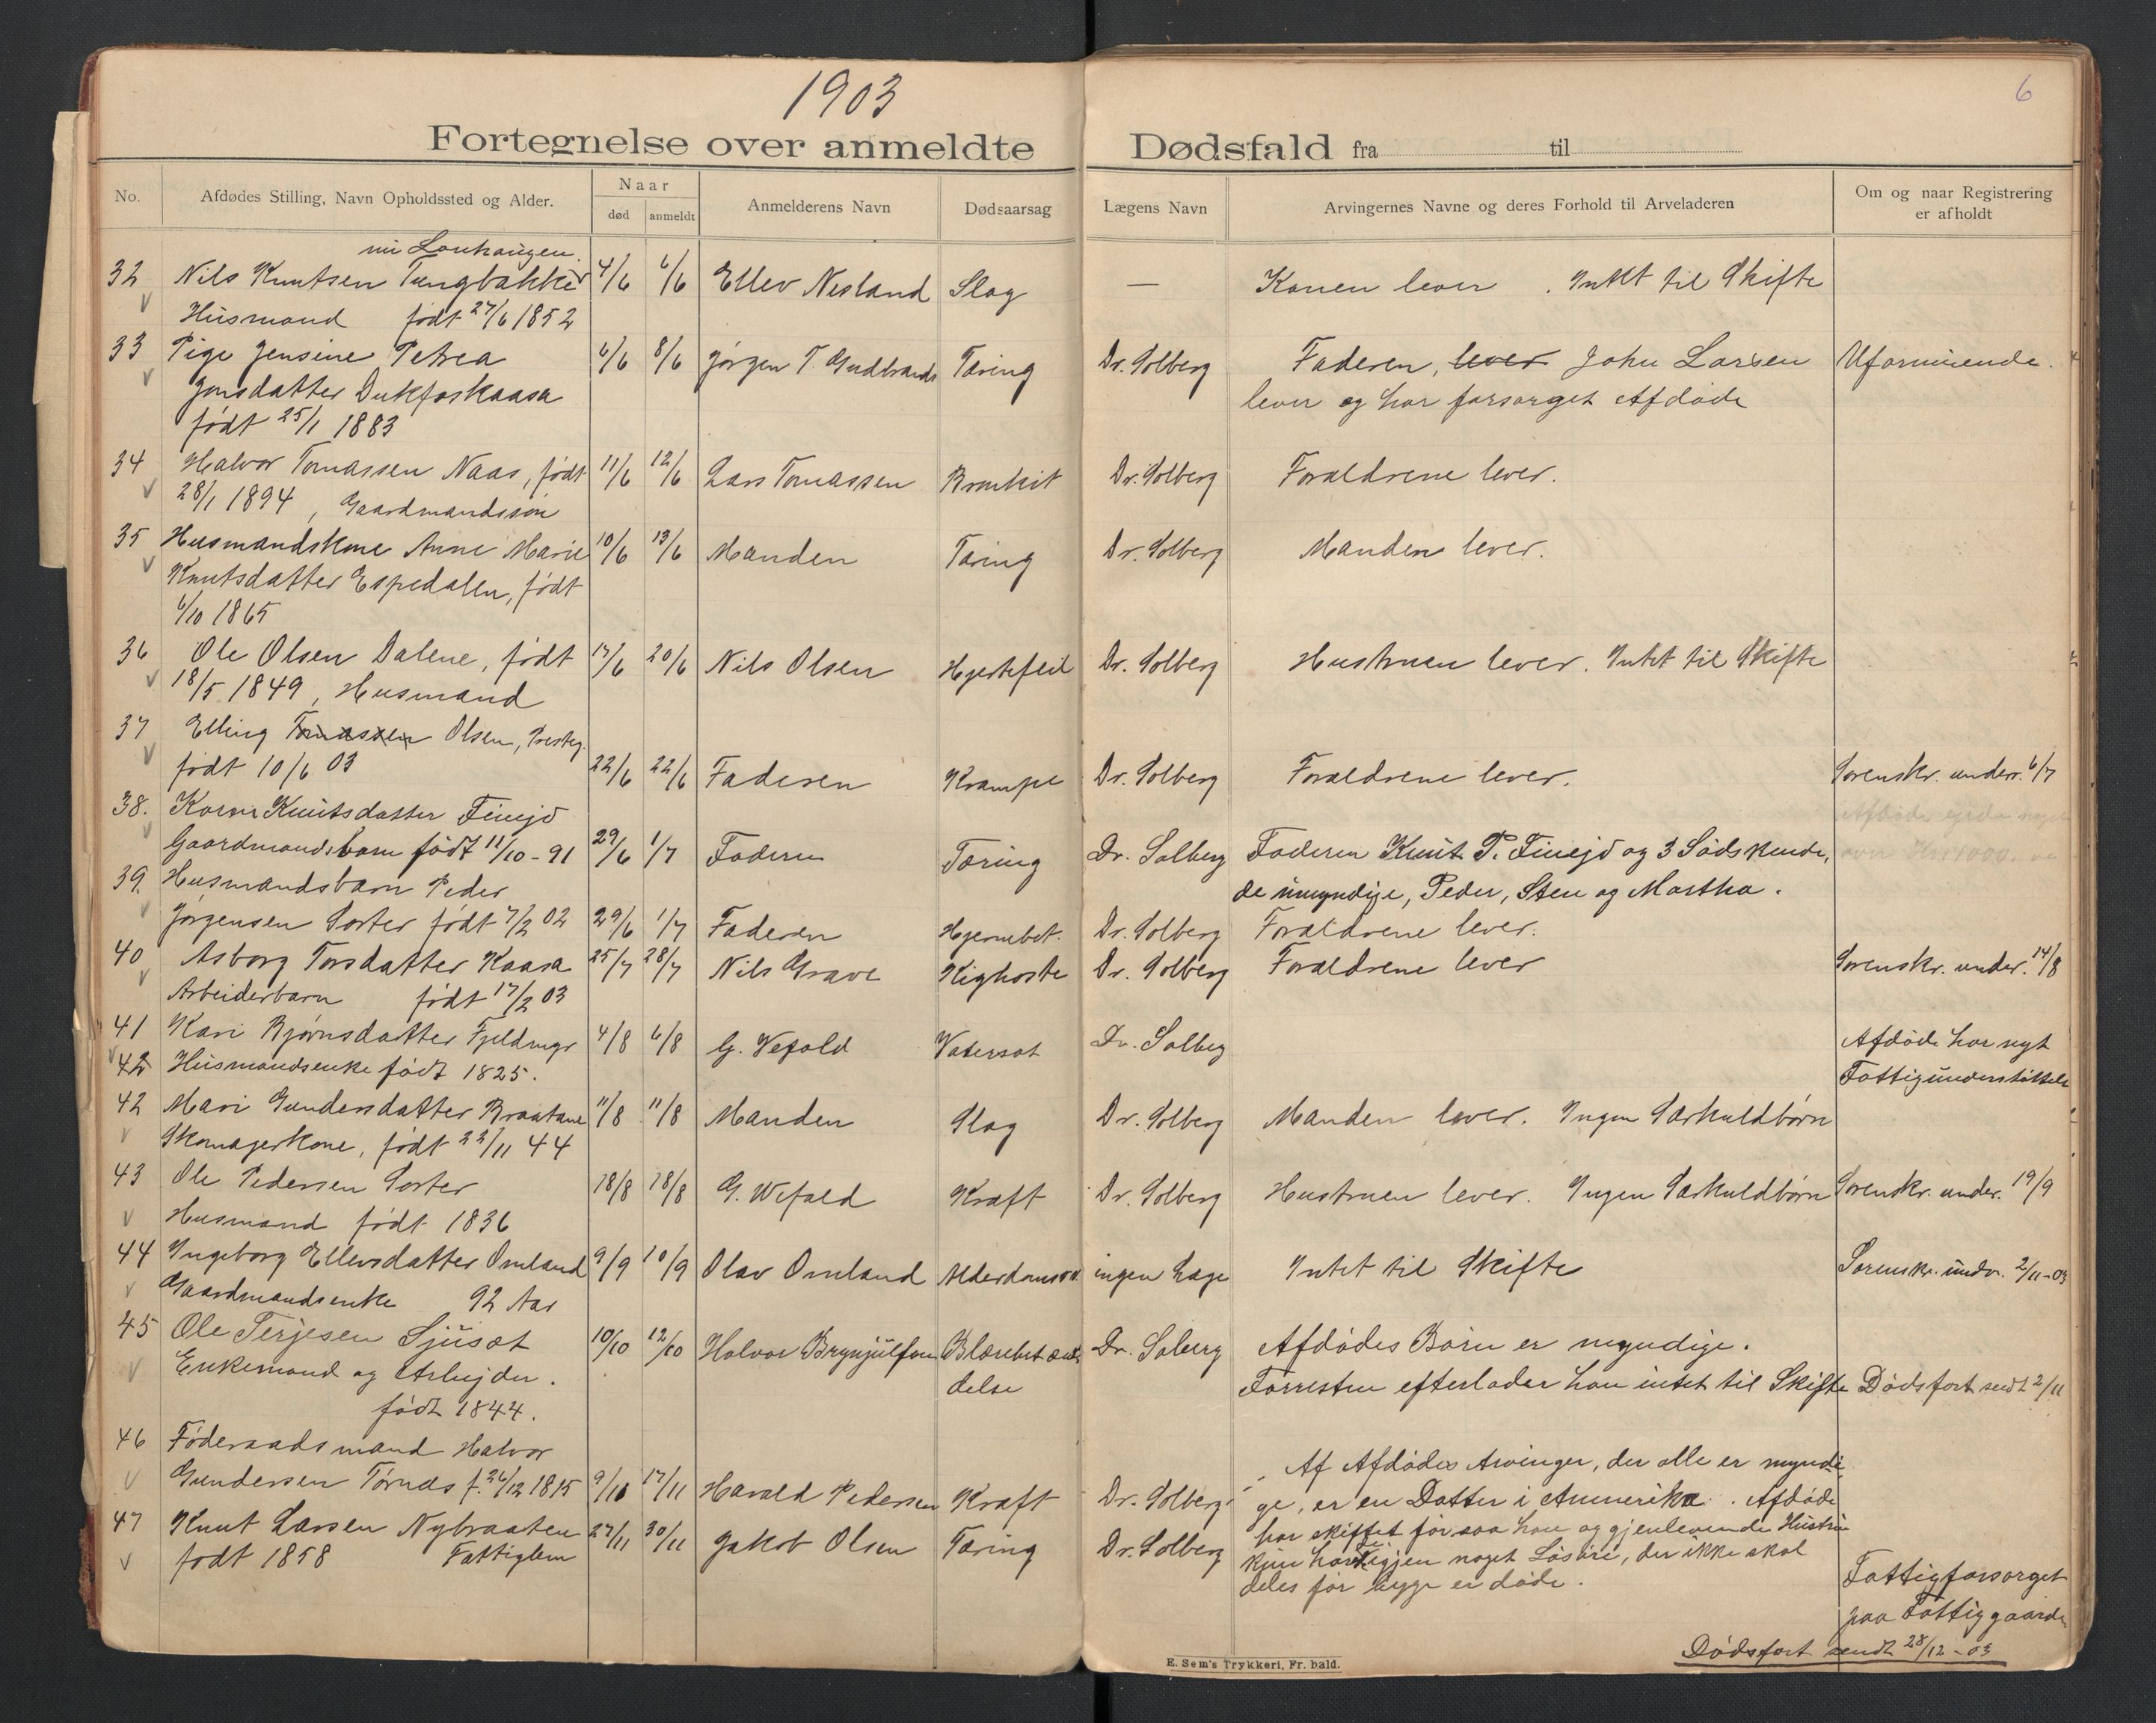 1903
6
Fortegnelse over anmeldte Dødsfald fra til
No. Afdødes Stilling, Navn Opholdssted og Alder. Naar død anmeldt Anmelderens Navn Dødsaarsag Lægens Navn Arvingernes Navne og deres Forhold til Arveladeren Om og naar Registrering er afholdt
32 Nils Knutsen Tungbakken 4/6 6/6 Ellev Nesland Slag — Konen lever. Intet til Skifte
Husmand født 27/6 1852
33 Pige Jensine Petrea 6/6 8/6 Jørgen T. Gudbrands Tæring Dr. Solberg Faderen, lever John Larsen Uformuende.
Jonsdatter Dukfoskaasa lever og har forsørget Afdøde
født 25/1 1883
34 Halvor Tomassen Naas, født 11/6 12/6 Lars Tomassen Bronkit Dr. Solberg Forældrene lever.
28/1 1894, Gaardmandssøn
35 Husmandskone Anne Marie 10/6 13/6 Manden Tæring Dr. Solberg Manden lever.
Knutsdatter Espedalen, født
6/10 1865
36 Ole Olsen Dalene, født 17/6 20/6 Nils Olsen Hjertefeil Dr. Solberg Hustruen lever. Intet til Skifte
18/5 1849, Husmand
37 Elling Tomassen Olsen, Presteg.
født 10/6 03 22/6 22/6 Faderen Krampe Dr. Solberg Forældrene lever. Sorenskr. underr. 6/7
38. Knutsdatter
Gaardmandsbarn født 11/10-91 29/6 1/7 Faderen Tæring Dr. Solberg Faderen Knut P. og 3 Sødskende,
39. Husmandsbarn Peder de umyndige, Peder, Sten og Martha.
Jørgensen Sorter født 7/2 02 29/6 1/7 Faderen Hjernebet. Dr. Solberg Forældrene lever.
40 Asborg Torsdatter Kaasa 25/7 28/7 Nils Grave Kighoste Dr. Solberg Forældrene lever Sorenskr. under. 14/8
Arbeiderbarn født 17/2 03
41 Kari Bjørnsdatter 4/8 6/8 G. Vefald Vatersot Dr. Solberg Afdøde har nyt
42 Husmandsenke født 1825. Fattigunderstøttelse
42 Mari Gundersdatter Braatane 11/8 11/8 Manden Slag Dr. Solberg Manden lever. Ingen Særkuldbørn
Skomagerkone, født 22/11 44
43 Ole Pedersen Sorter 18/8 18/8 G. Wefald Kræft Dr. Solberg Hustruen lever. Ingen Særkuldbørn Sorenskr. under. 19/9
Husmand født 1836
44 Ingeborg Ellevsdatter Omland 9/9 10/9 Olav Omland Alderdomssv. ingen Læge Intet til Skifte Sorenskr. undr. 2/11-03
Gaardmandsenke 92 Aar
45 Ole Terjesen Sjusæt 10/10 12/10 Halvor Brynjulfsen Blærebetæn- Dr. Solberg Afdødes Børn er myndige.
Enkemand og Arbejder. delse Forresten efterlader han intet til Skifte Dødsfort sendt 2/11
født 1844.
46 Føderaadsmand Halvor Af Afdødes Arvinger, der alle er myndi
Gundersen Tørnæs f. 26/12 1815 9/11 17/11 Harald Pedersen Kræft Dr. Solberg ge, er en Datter i Amerika. Afdøde
har skiftet før saa han og gjenlevende Hustru
47 Knut Larsen Nybraaten 27/11 30/11 Jakob Olsen Tæring Dr. Solberg kun havde igjen noget Løsøre, der ikke skal
født 1858 Fattiglem deles før begge er døde. Fattigforsørget
paa Fattiggaarden
Dødsfort sendt 28/12-03
E. Sem's Trykkeri, Fr. hald.